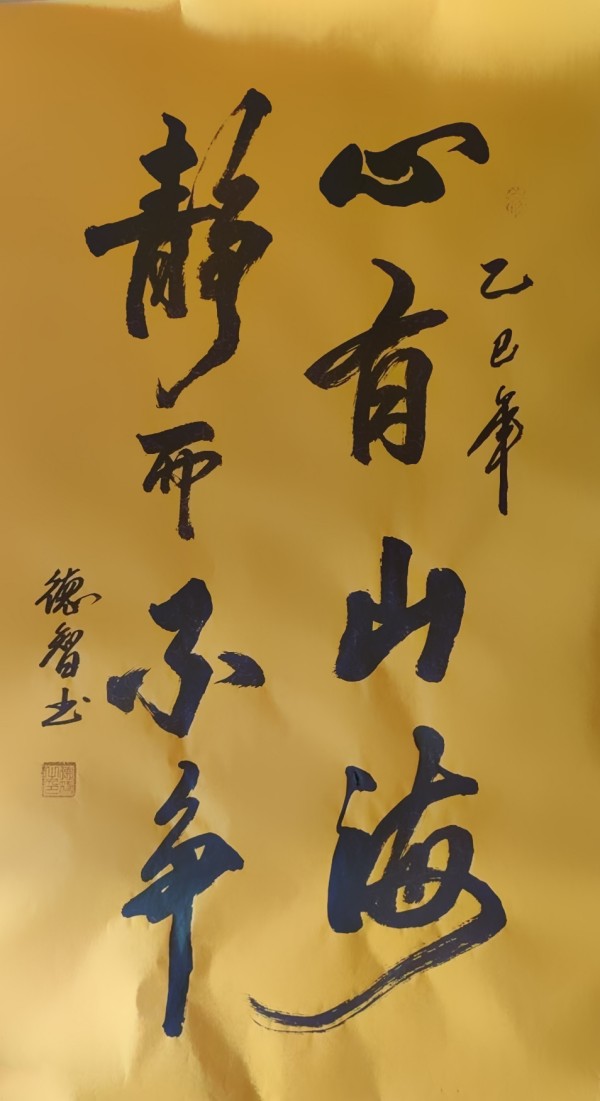 乙巳年
心有山海
静而不争
德智书